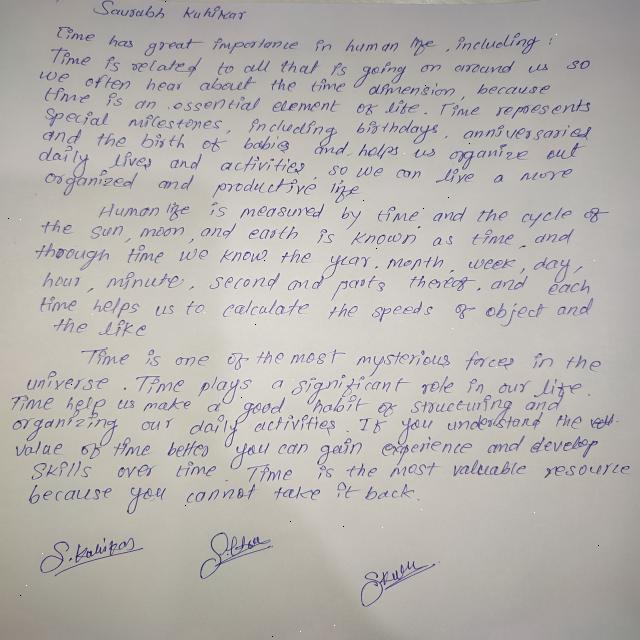 Saurabh Kuhikar
Time has great importance in human life, including :
Time is related to all that is going on around us so
we often hear about the time dimension, because
time is an essential element of life. Time represents
special milestones, including birthdays, anniversaries
and the birth of babies and helps us organize out
daily lives and activities, so we can live a more
organized and productive life
Human life is measured by time and the cycle of
the sun, moon, and earth is known as time, and
through time we know the year, month, week, day,
hour, minute, second and parts thereof, and each
time helps us to calculate the speeds of object and
the like
Time is one of the most mysterious forces in the
universe. Time plays a significant role in our life.
Time help us make a good habit of structuring and
organizing our daily activities. If you understand the
value of time better you can gain experience and develop
skills over time. Time is the most valuable resource
because you cannot take it back.
S.Kuhikar